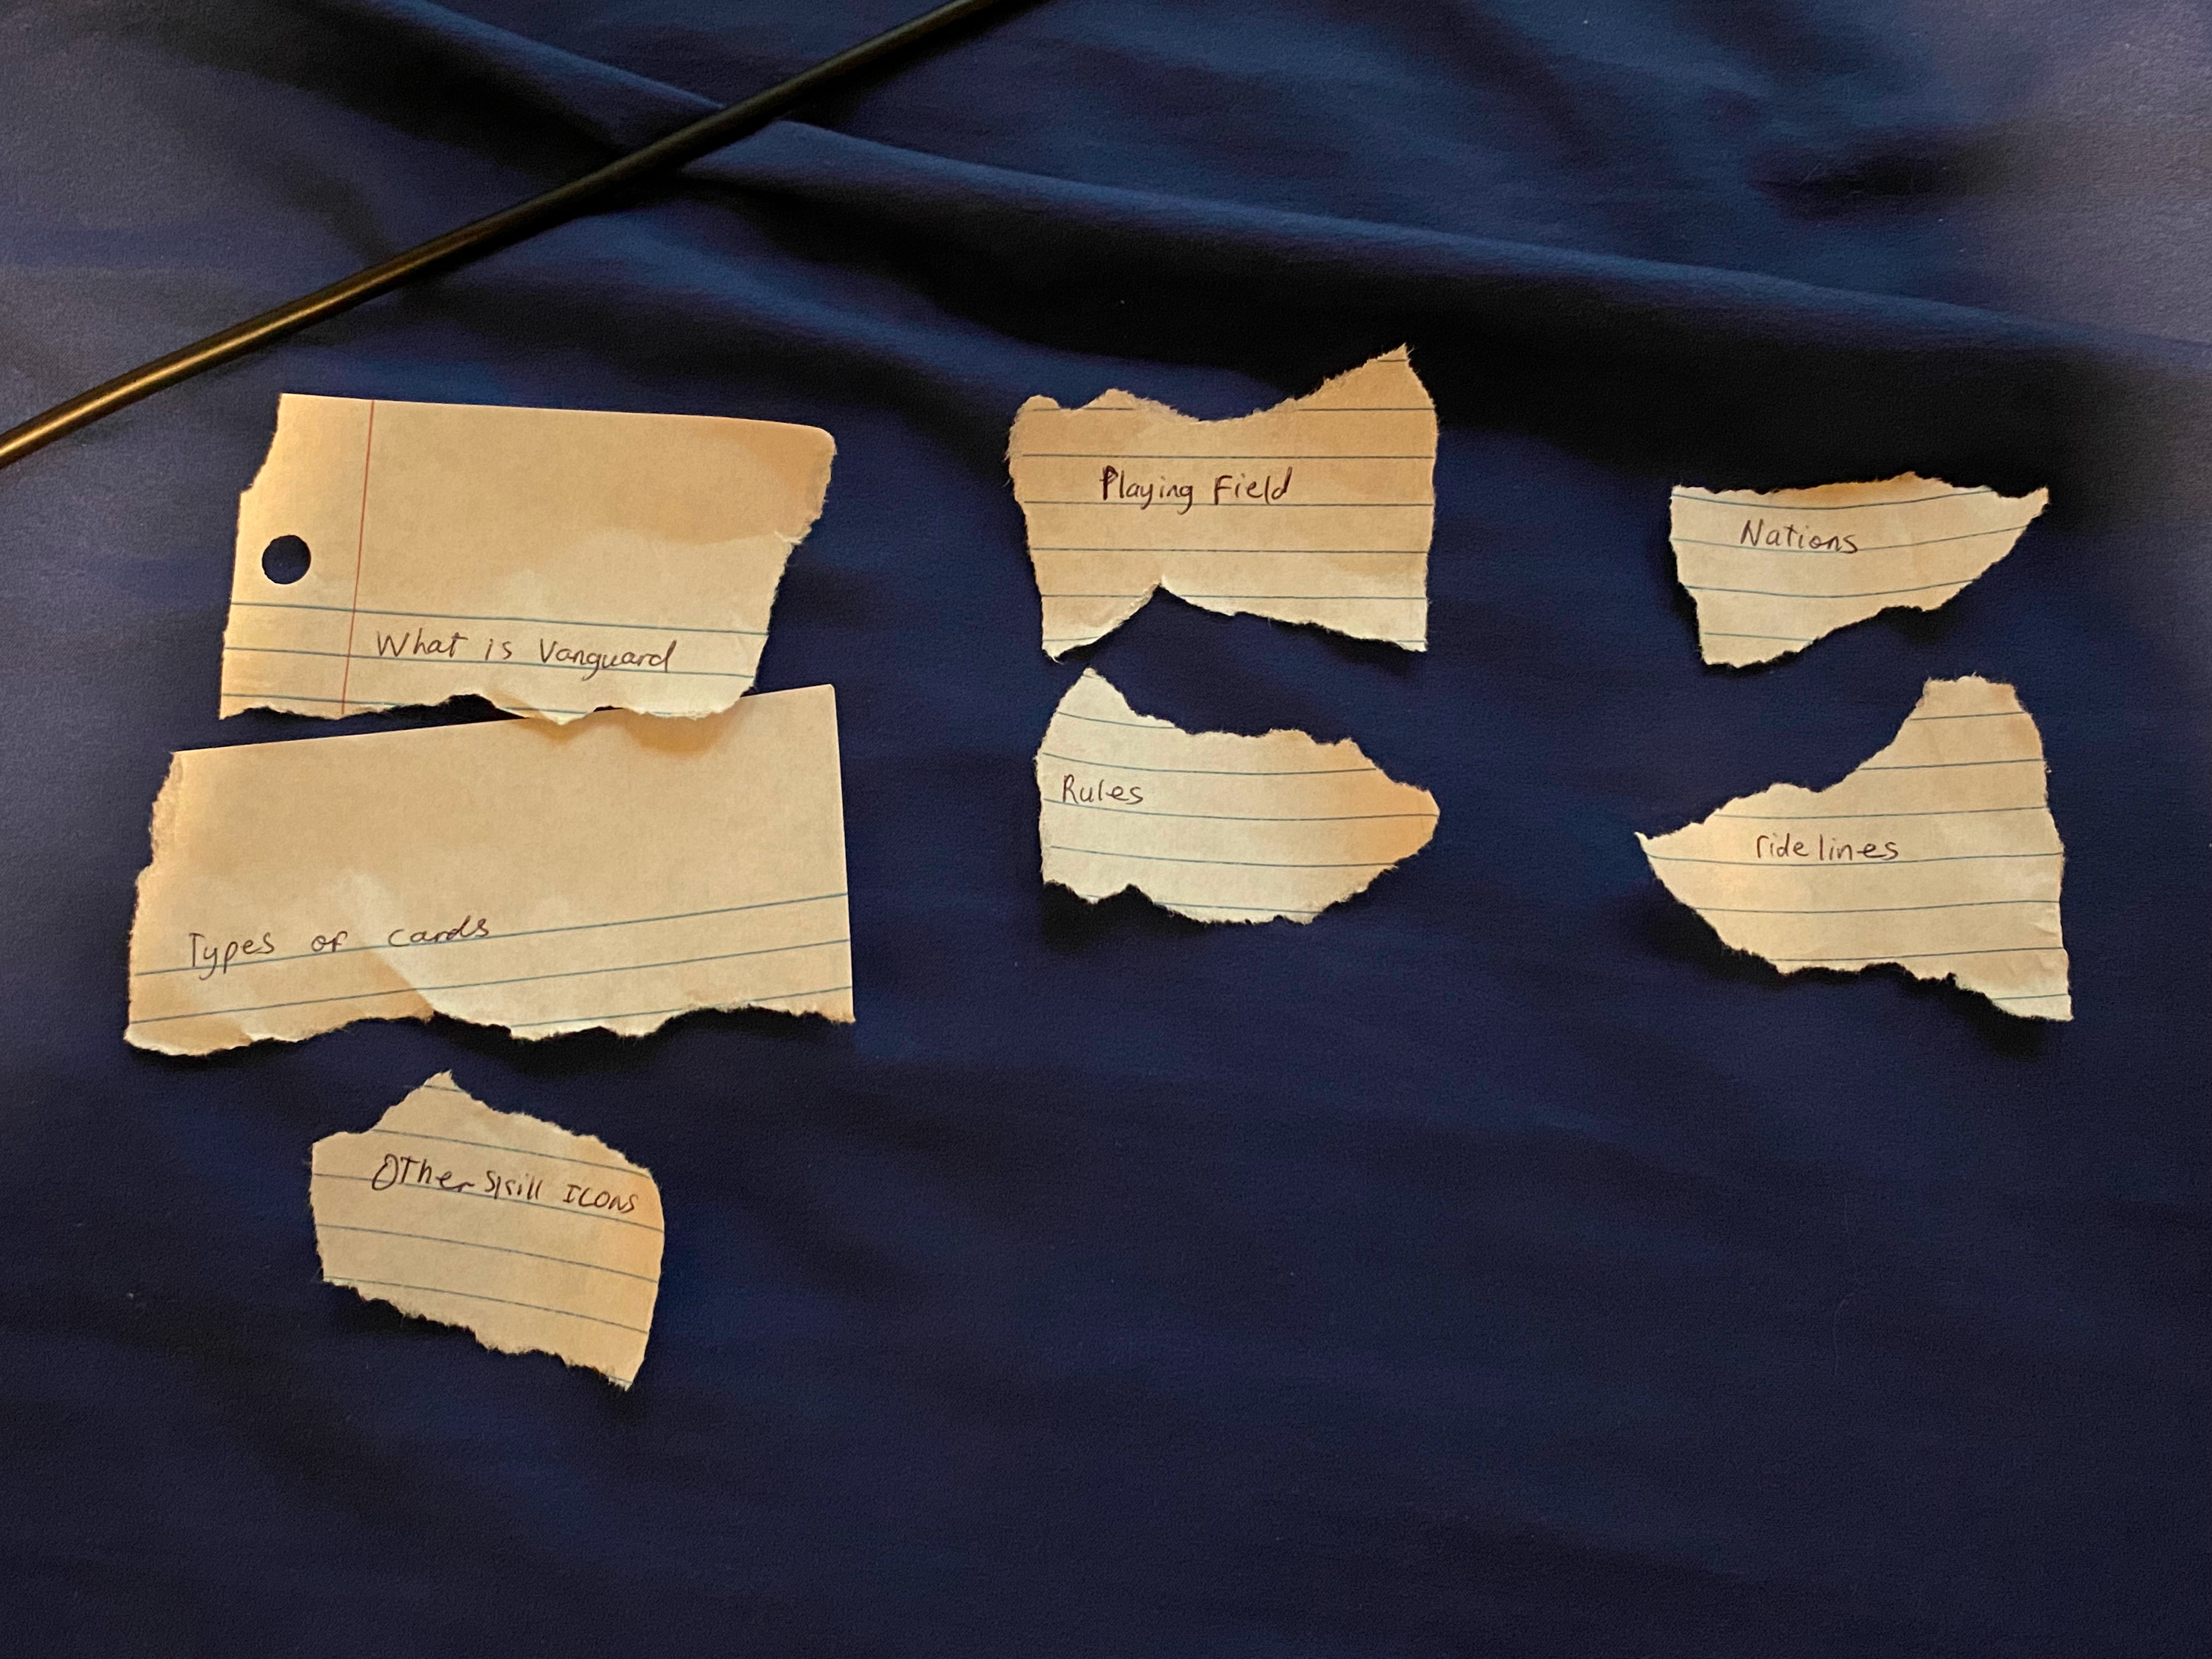 What is Vanguard
Types of cards
Other Skill ICONS
Playing Field
Rules
Nations
ride lines